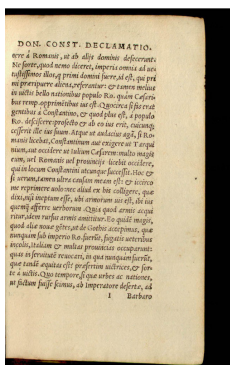 DON. CONST. DECLAMATIO.
tere à Romanis, ut ab alijs dominis defecerant.
Ne forte, quod nemo diceret, imperia omnia ad ue
tustissimos illos, primi domini fuere, id est, qui pri
mi præripuere aliena, referantur: & tamen melius
in uictis bello nationibus populo Ro. quàm Cæsaris
bus remp. opprimētibus ius est. Quocirca si fas erat
gentibus à Constantino, & quod plus est, à populo
Ro. desciscere: profecto & ab eo ius erit, cuicunq;
cesserit ille ius suum. Atque ut audacius agā, si Ro
manis licebat, Constantinum aut exigere ut Tarqui
nium, aut occidere ut Iulium Cæsarem: multo magis
eum, uel Romanis uel prouincijs licebit occidere,
qui in locum Constantini utcunque successit. Hoc &
si uerum, tamen ultra causam meam est: & iccirco
me reprimere uolo: nec aliud ex his colligere, quæ
dixi, nisi ineptum esse, ubi armorum uis est, ibi ius
quenq; afferre uerborum. Quia quod armis acqui
ritur, idem rursus armis amittitur. Eo quidē magis,
quod aliæ nouæ gētes, ut de Gothis accepimus, quæ
nunquam sub imperio Ro. fuerūt, fugatis ueteribus
incolis, Italiam & multas prouincias occuparunt:
quas in seruitutē reuocari, in qua nunquam fuerūt,
quæ tandē æquitas est? præsertim uictrices, & for
te à uictis. Quo tempore, si quæ urbes ac nationes,
ut factum fuisse scimus, ab Imperatore desertæ, ad
I Barbaro